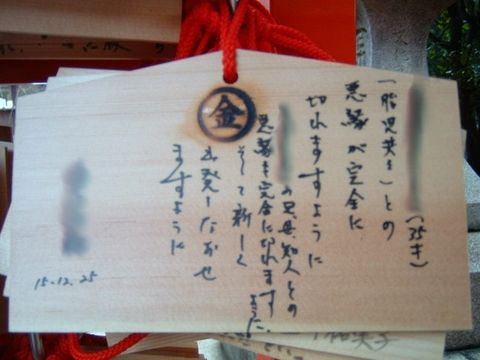 (35才)
「胎児共々」との
悪縁が完全に
切れますように
の父、母、知人との
悪縁も完全に切れます
ように。
そして新しく
出発しなおせ
ますように
15.12.25
金